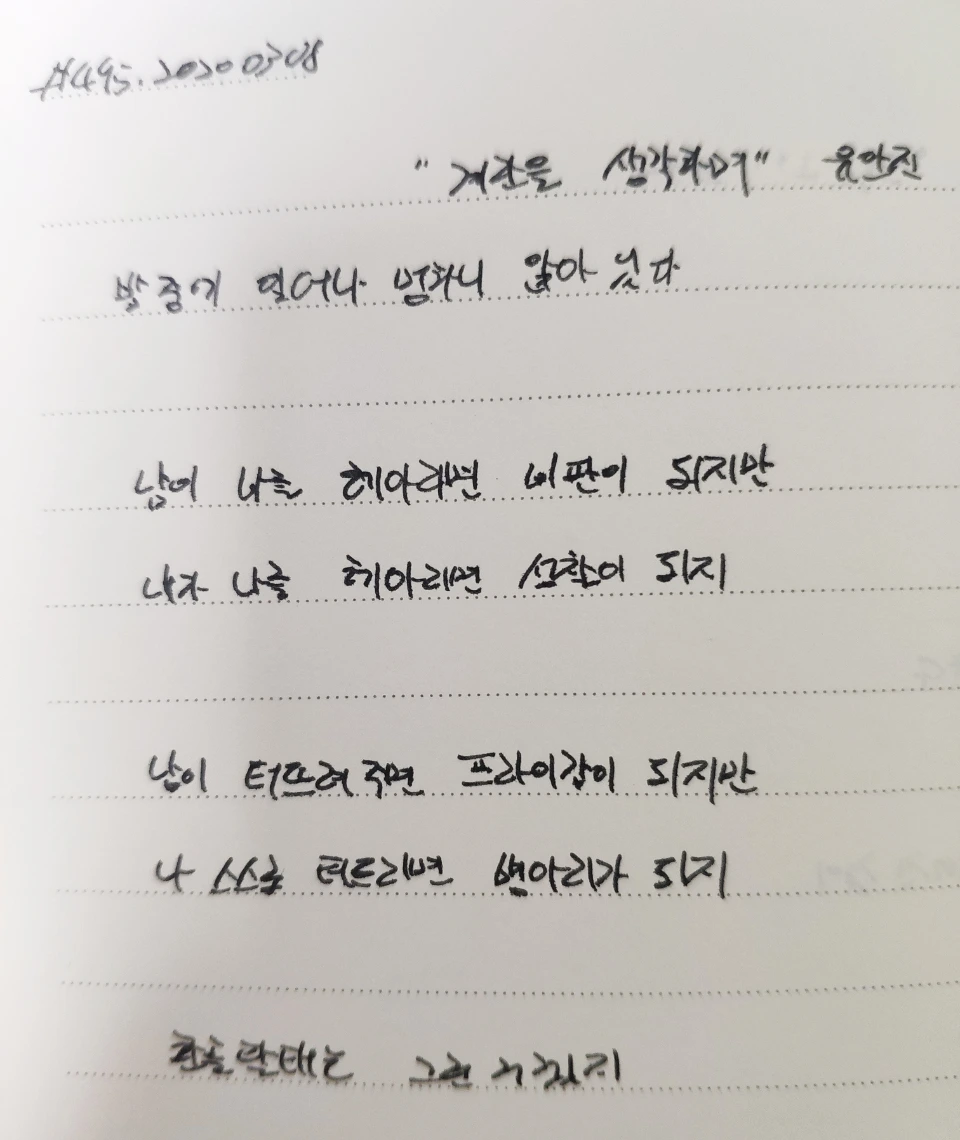 #495. 20200308
"계란을 생각하며" 유안진
밤중에 일어나 멍하니 앉아 있다
남이 나를 헤아리면 비판이 되지만
내가 나를 헤아리면 성찰이 되지
남이 터뜨려 주면 프라이감이 되지만
나 스스로 터뜨리면 병아리가 되지
환골탈태는 그런 거겠지